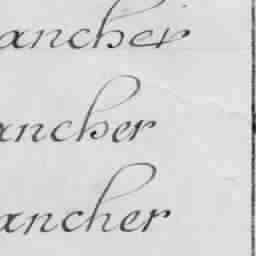 ancher
ancher
ancher